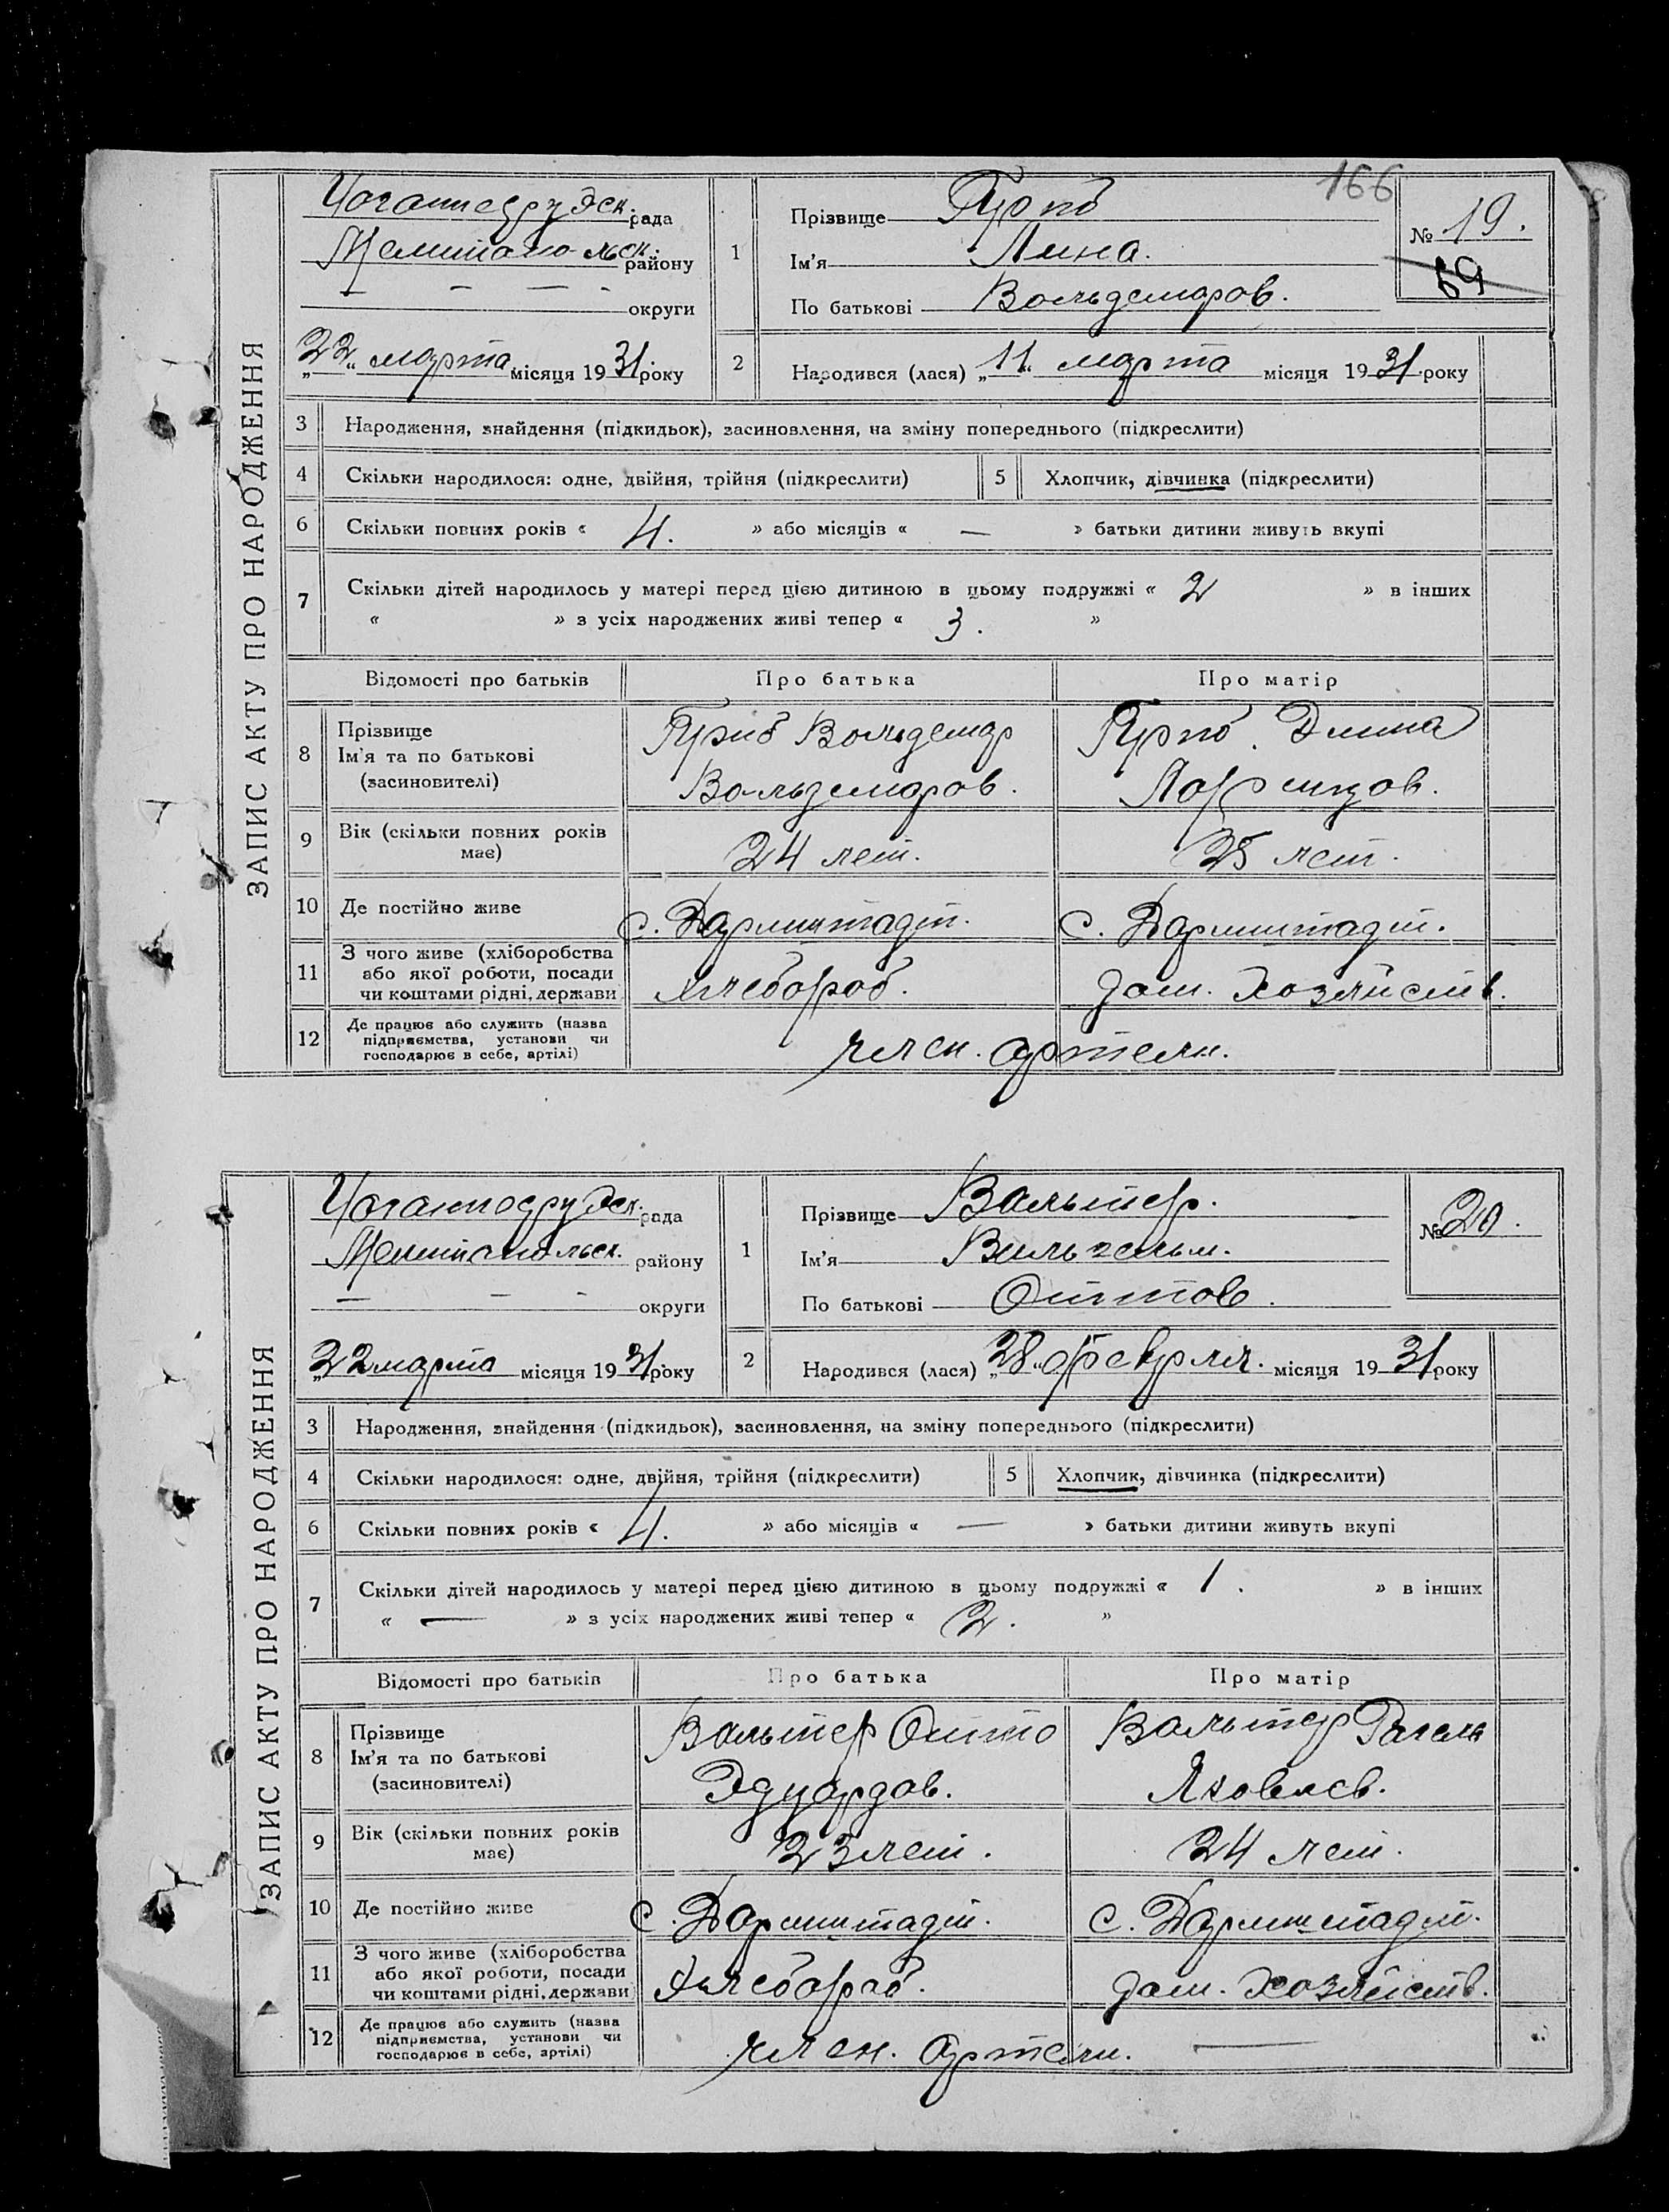 166
Иоганнесрудск. рада
Прізвище
№ 19.
Мелитопольск. району
1
Ім'я Лина.
69
округи
По батькові Вольдемаров.
„22“ марта місяця 1931. року
2
Народився (лася) „11“ марта місяця 1931 року
ЗАПИС АКТУ ПРО НАРОДЖЕННЯ
3 Народження, знайдення (підкидьок), засиновлення, на зміну попереднього (підкреслити)
4 Скільки народилося: одне, двійня, трійня (підкреслити) 5 Хлопчик, дівчинка (підкреслити)
6 Скільки повних років « 4. » або місяців « — » батьки дитини живуть вкупі
7 Скільки дітей народилось у матері перед цією дитиною в цьому подружжі « 2 » в інших
« » з усіх народжених живі тепер « 3. »
Відомості про батьків Про батька Про матір
8 Прізвище
Ім'я та по батькові Вольдемар
(засиновителі) Вольдемаров.
9 Вік (скільки повних років
має) 24 лет. 25 лет.
10 Де постійно живе с. Дармштадт. с. Дармштадт.
11 З чого живе (хліборобства
або якої роботи, посади
чи коштами рідні, держави хлебороб. дом. хозяйств.
12 Де працює або служить (назва
підприємства, установи чи
господарює в себе, артілі) член. артели.
Иоганнесрудск. рада
Прізвище Вальтер.
№ 20.
Мелитопольск. району
1
Ім'я Вильгельм.
округи
По батькові Оттов.
„22 марта місяця 1931. року
2
Народився (лася) „28“ февраля. місяця 1931 року
ЗАПИС АКТУ ПРО НАРОДЖЕННЯ
3 Народження, знайдення (підкидьок), засиновлення, на зміну попереднього (підкреслити)
4 Скільки народилося: одне, двійня, трійня (підкреслити) 5 Хлопчик, дівчинка (підкреслити)
6 Скільки повних років « 4. » або місяців « — » батьки дитини живуть вкупі
7 Скільки дітей народилось у матері перед цією дитиною в цьому подружжі « 1. » в інших
« — » з усіх народжених живі тепер « 2. »
Відомості про батьків Про батька Про матір
8 Прізвище Вальтер Отто Вальтер Рагель
Ім'я та по батькові
(засиновителі) Эдуардов. Яковлев.
9 Вік (скільки повних років
має) 23 лет. 24 лет.
10 Де постійно живе с. Дармштадт. с. Дармштадт.
11 З чого живе (хліборобства
або якої роботи, посади
чи коштами рідні, держави хлебороб. дом. хозяйств.
12 Де працює або служить (назва
підприємства, установи чи
господарює в себе, артілі) член. артели. —